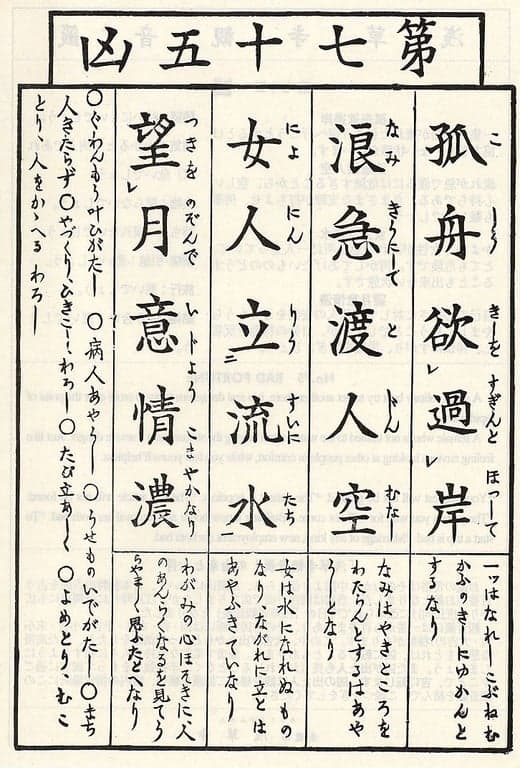 第七十五凶
孤舟欲過岸
こ しう きしを すぎんと ほつして
一ツはなれしこぶねむ
かふのきしにゆかんと
するなり
浪急渡人空
なみ きうにして とじん むな
なみはやきところを
わたらんとするはあや
うしとなり
女人立流水
によ にん りう すいに たち
女は水になれぬもの
なりながれに立とは
あやふきていなり
望月意情濃
つきを のぞんで じよう こまやかなり
わがみの心ほそきに人
のあんらくなるを見てう
らやましく思ふたとへなり
○ぐわんもう叶ひがたし ○病人あやうし ○うせものいでがたし ○まち
人きたらず ○やづくりひきこしわろし ○たび立あしく ○よめとりむこ
とり人をかゝへるわろし